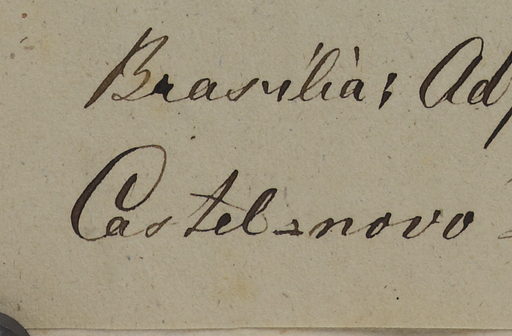 Brasilia; Ad
Castel=novo